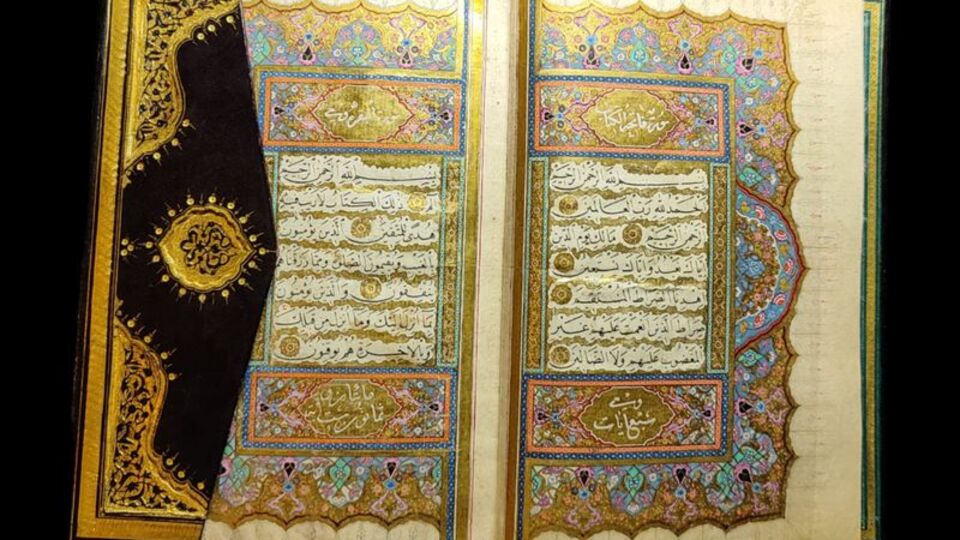 سورة فاتحة الكتاب
بسم الله الرحمن الرحيم
الحمد لله رب العالمين
الرحمن الرحيم مالك يوم الدين
اياك نعبد واياك نستعين
اهدنا الصراط المستقيم
صراط الذين انعمت عليهم غير
المغضوب عليهم ولا الضالين
وهي
سبع آيات
سورة البقرة وهي
بسم الله الرحمن الرحيم
الم ذلك الكتاب لا ريب فيه
هدى للمتقين الذين يؤمنون
بالغيب ويقيمون الصلوة ومما رزقناهم
ينفقون والذين يؤمنون
بما انزل اليك وما انزل من قبلك
وبالاخرة هم يوقنون